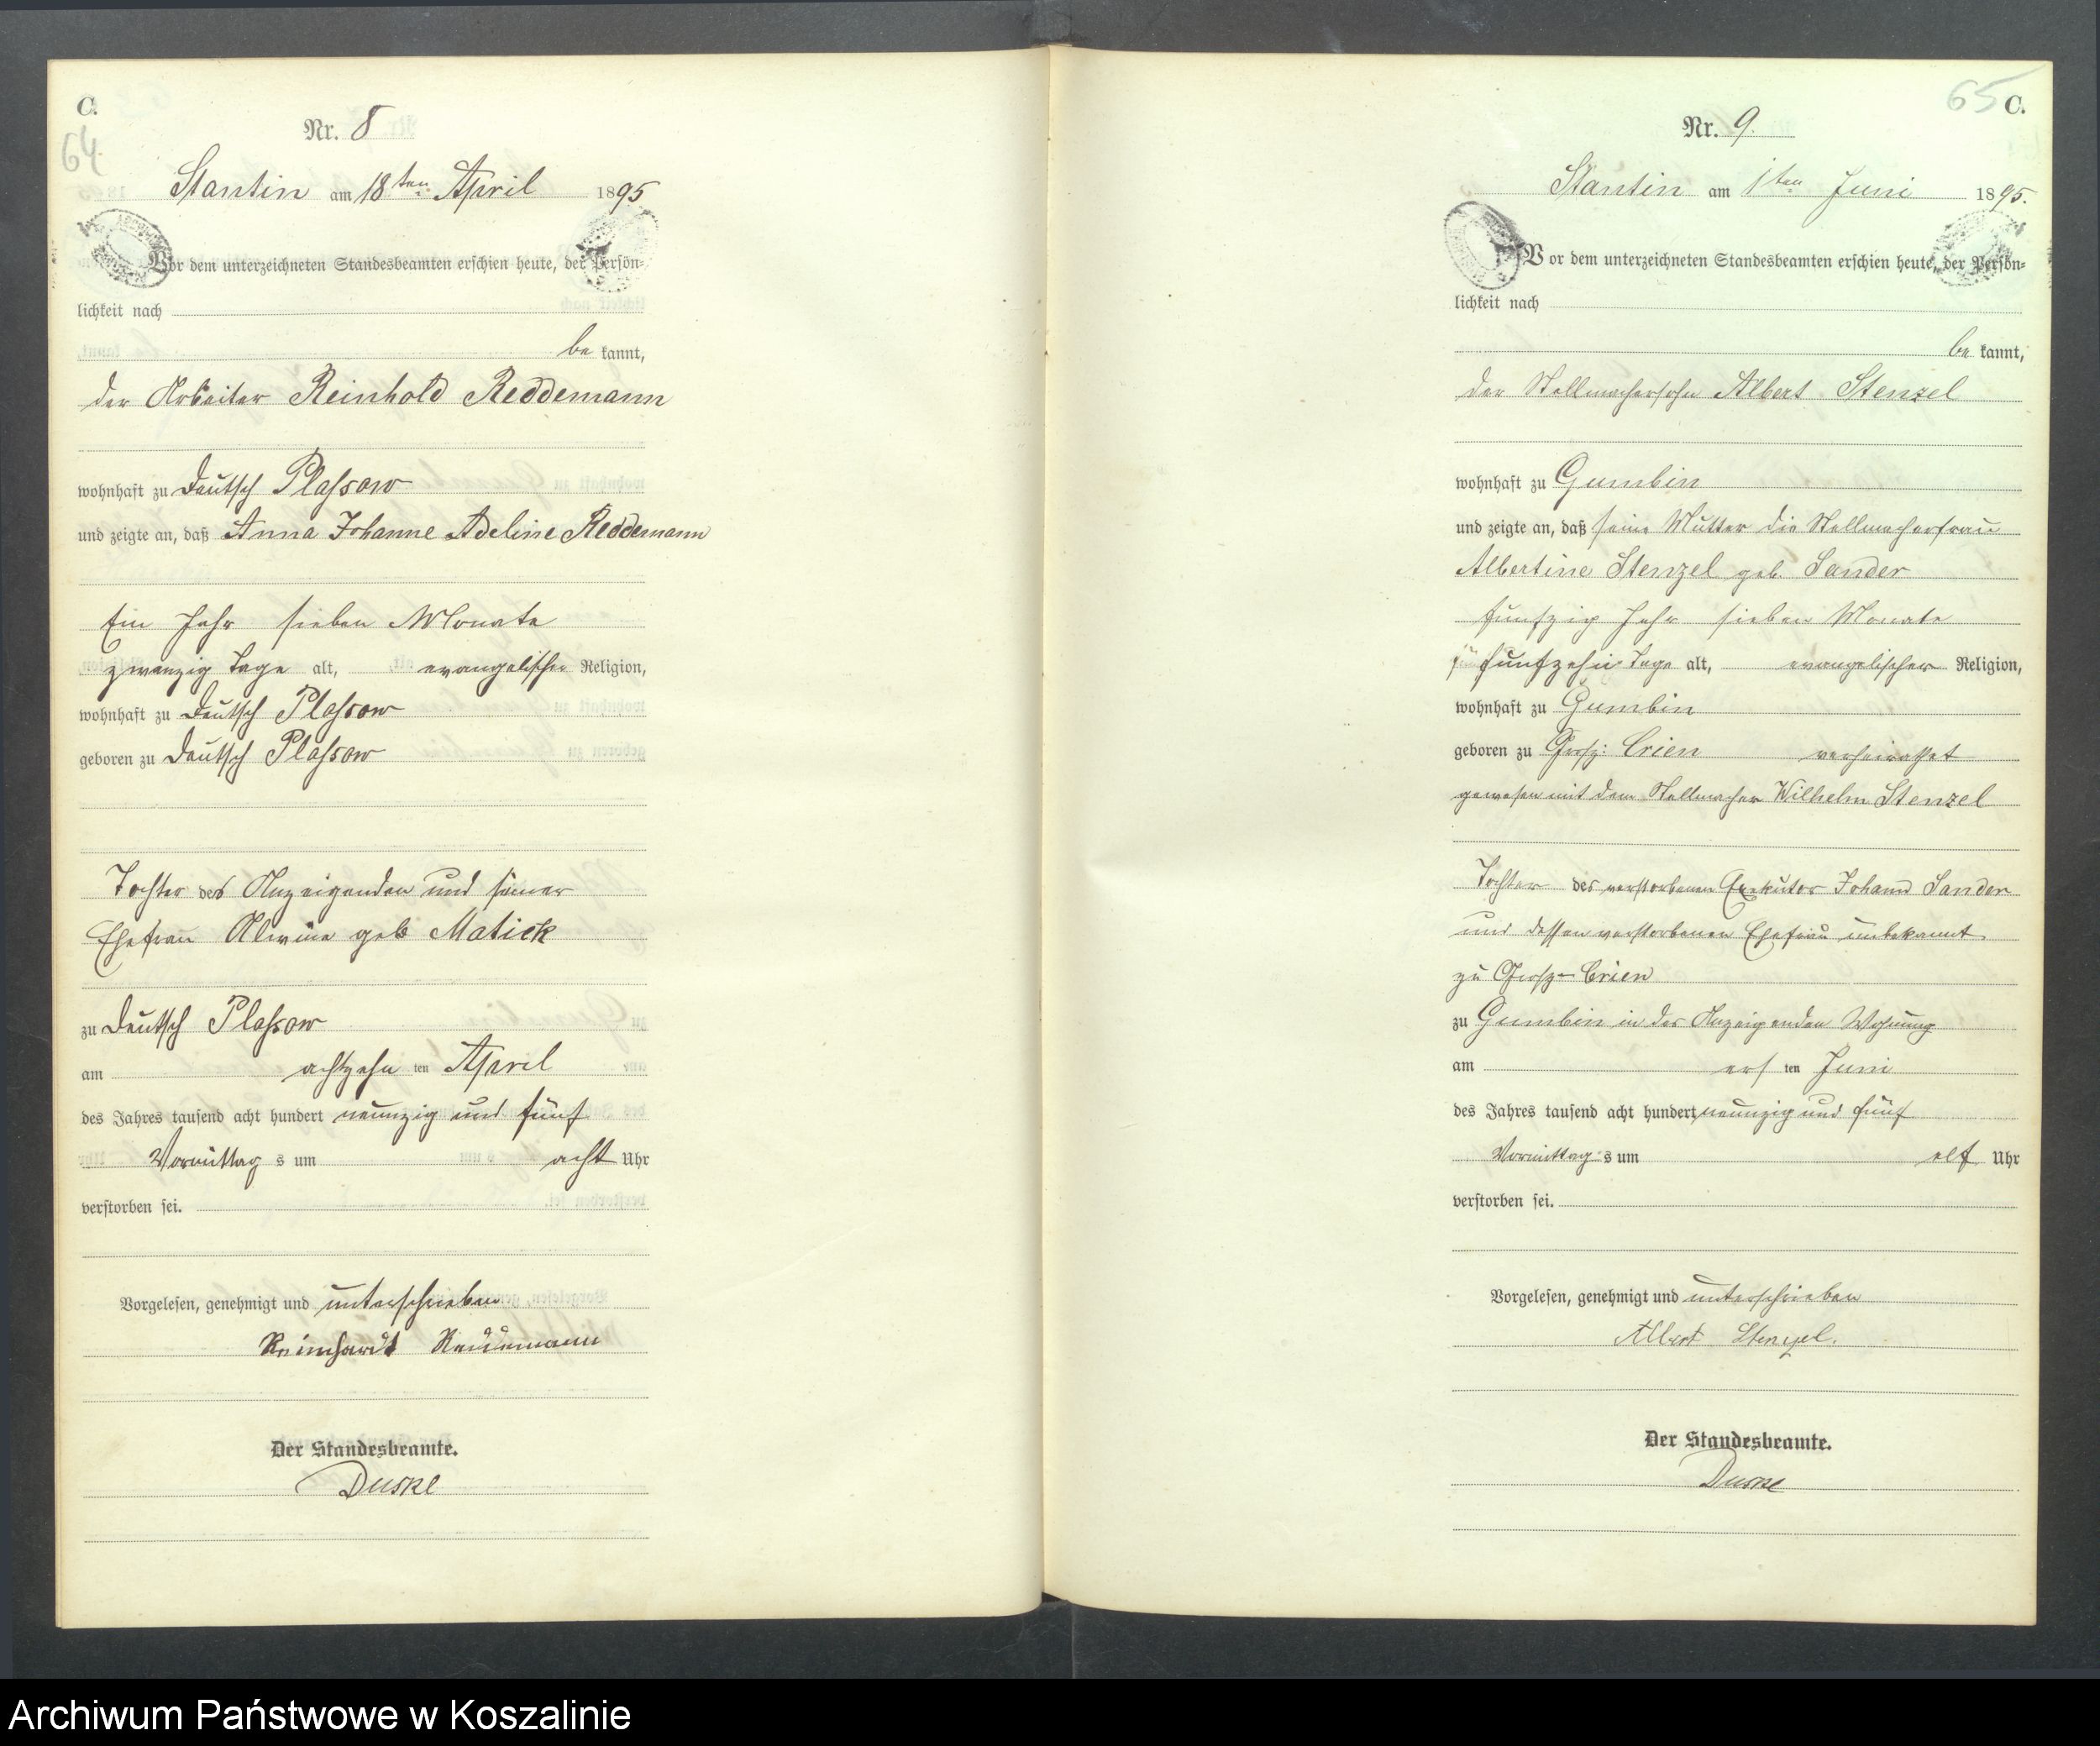 C.
64.
Nr. 8
Stantin am 18ten April 1895
Vor dem unterzeichneten Standesbeamten erschien heute, der Persön=
lichkeit nach
be kannt,
der Arbeiter Reinhold Reddemann
wohnhaft zu Deutsch Plassow
und zeigte an, daß Anna Johanne Adeline Reddemann
Ein Jahr sieben Monate
zwanzig Tage alt, evangelischer Religion,
wohnhaft zu Deutsch Plassow
geboren zu Deutsch Plassow
Tochter des Anzeigenden und seiner
Ehefrau Alwine geb Matick
zu Deutsch Plassow
am achtzehn ten April
des Jahres tausend acht hundert neunzig und fünf
Vormittag s um acht Uhr
verstorben sei.
Vorgelesen, genehmigt und unterschrieben
Reinhardt Reddemann
Der Standesbeamte.
Duske
65 C.
Nr. 9.
Stantin am 1ten Juni 1895.
Vor dem unterzeichneten Standesbeamten erschien heute, der Persön=
lichkeit nach
be kannt,
der Stellmachersohn Albert Stenzel
wohnhaft zu Gumbin
und zeigte an, daß seine Mutter die Stellmacherfrau
Albertine Stenzel geb. Sander
funfzig Jahr sieben Monate
funfzehn Tage alt, evangelischer Religion,
wohnhaft zu Gumbin
geboren zu Grosz: Crien verheirathet
gewesen mit dem Stellmacher Wilhelm Stenzel
Tochter des verstorbenen Exekutor Johann Sander
und dessen verstorbenen Ehefrau unbekannt
zu Grosz- Crien
zu Gumbin in des Anzeigenden Wohnung
am ers ten Juni
des Jahres tausend acht hundert neunzig und fünf
Vormittag s um elf Uhr
verstorben sei.
Vorgelesen, genehmigt und unterschrieben
Albert Stenzel.
Der Standesbeamte.
Duske
Archiwum Państwowe w Koszalinie